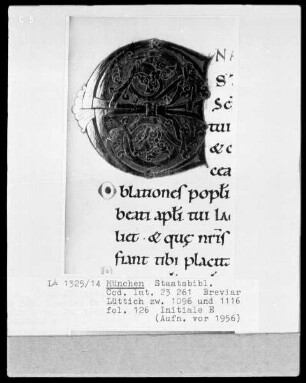 N A
S T
Sc̄
tuı
& c
cca
Oblationes popłi
beati apłi tui Iac
liet · & quȩ nr̄is
fiant tibi placit
LA 1325/14 München Staatsbibl.
Cod. lat. 23 261 Breviar
Lüttich zw. 1096 und 1116
fol. 126 Initiale E
(Aufn. vor 1956)